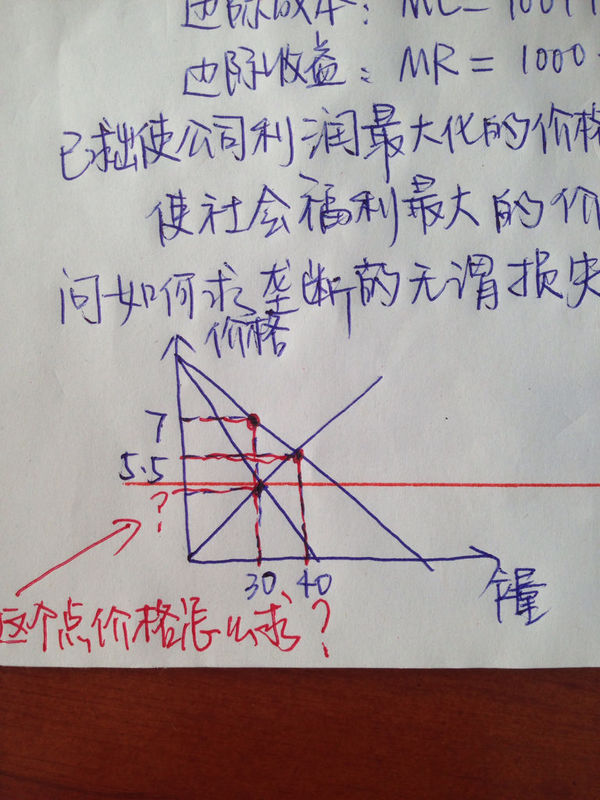 边际成本：MC=100+1
边际收益：MR=1000
已求出使公司利润最大化的价格
使社会福利最大的价
问如何求垄断的无谓损失
价格
7
5.5
?
30 40
产量
这个点价格怎么求？